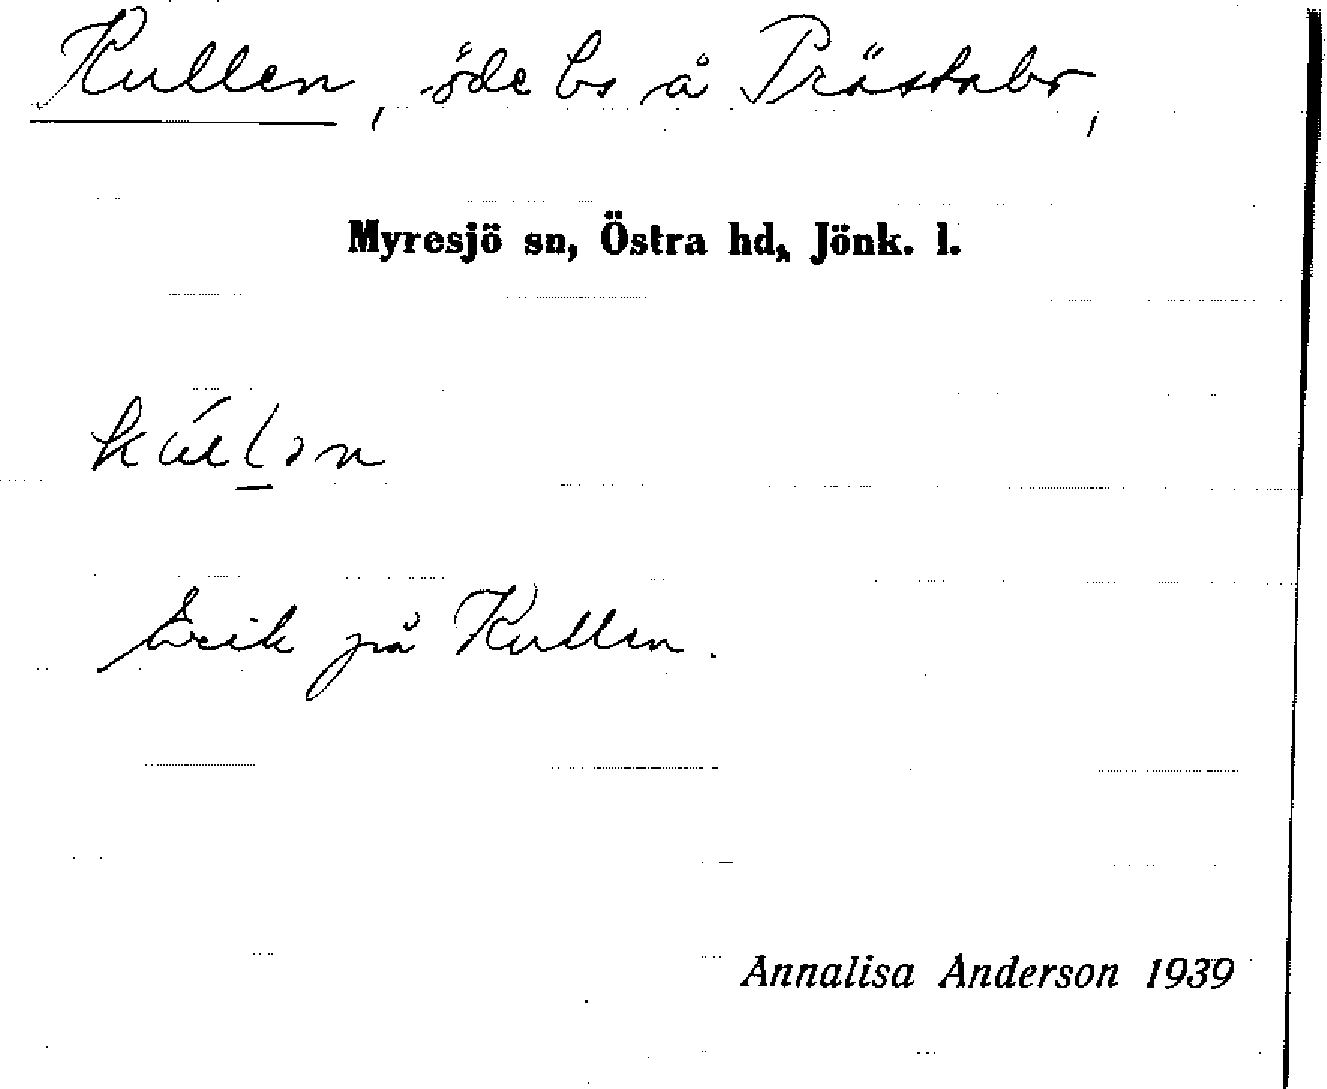 Kullen, öde bs å Prästabo,
Myresjö sn, Östra hd, Jönk. l.
Erik på Kullen.
Annalisa Anderson 1939